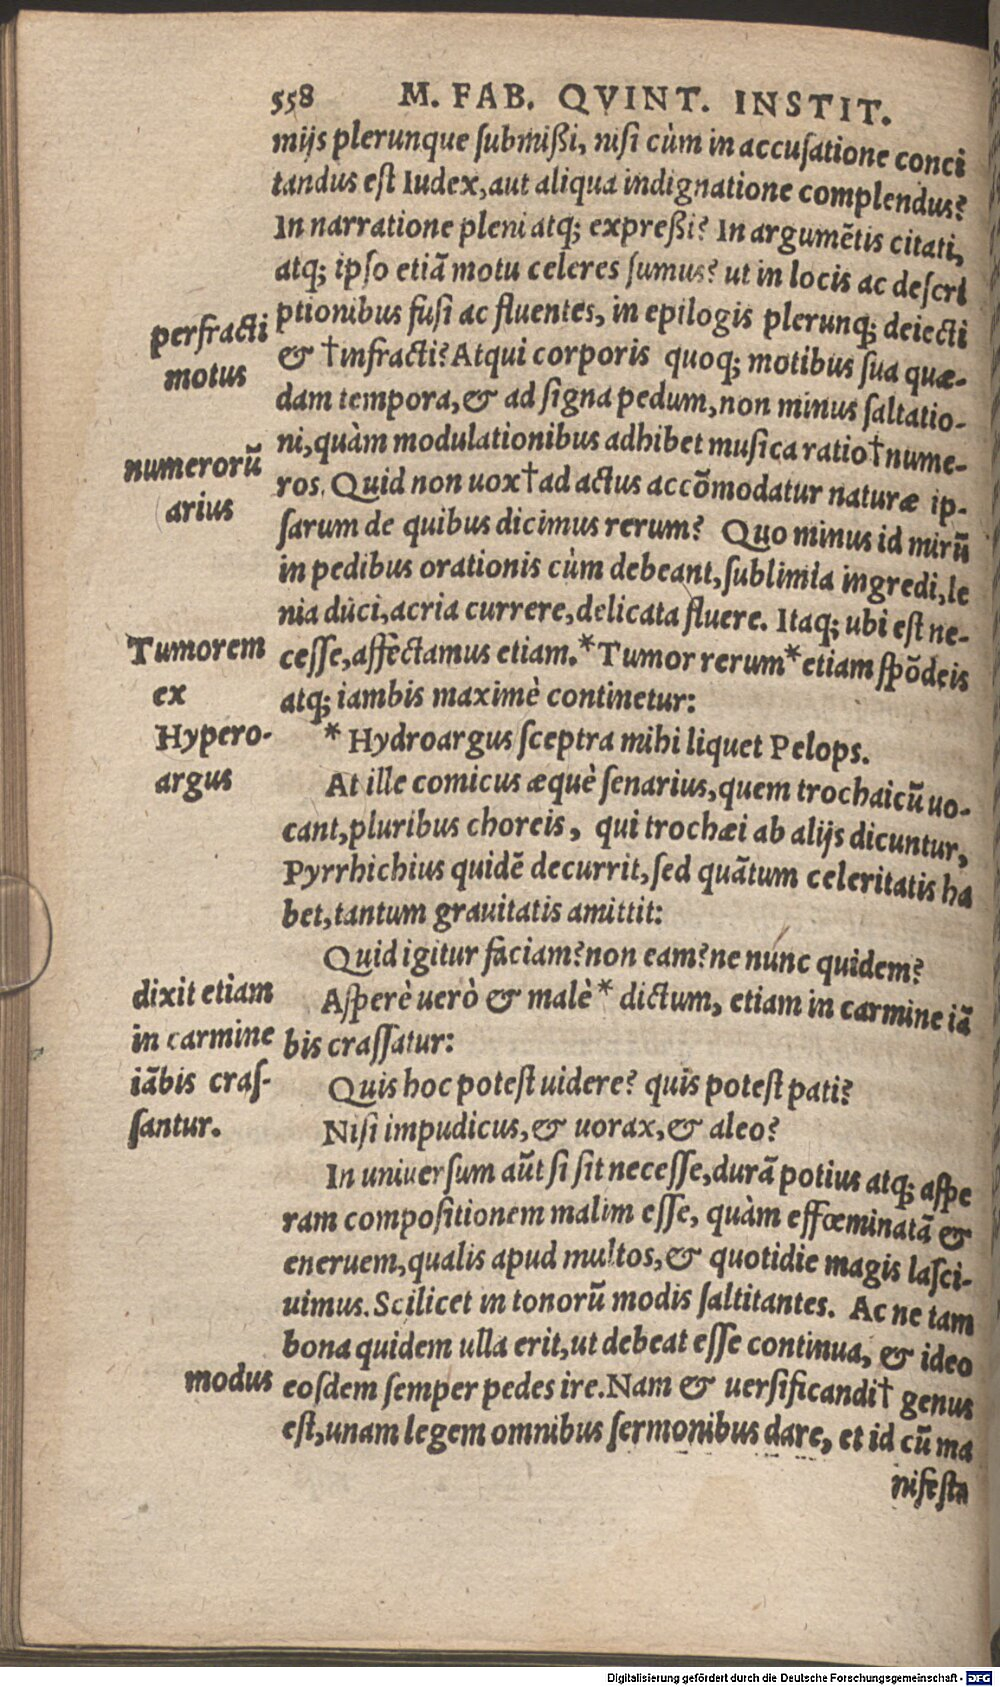 558 M. FAB. QVINT. INSTIT.
mijs plerunque submißi, nisi cùm in accusatione conci
tandus est Iudex, aut aliqua indignatione complendus?
In narratione pleni atq; expreßi? In argumẽtis citati,
atq; ipso etiã motu celeres sumus? ut in locis ac descri
ptionibus fusi ac fluentes, in epilogis plerunq; deiecti
perfracti
motus
& †infracti? Atqui corporis quoq; motibus sua quæ-
dam tempora, & ad signa pedum, non minus saltatio-
ni, quàm modulationibus adhibet musica ratio†nume-
numerorũ
arius
ros. Quid non uox†ad actus accõmodatur naturæ ip-
sarum de quibus dicimus rerum? Quo minus id mirũ
in pedibus orationis cùm debeant, sublimia ingredi, le
nia duci, acria currere, delicata fluere. Itaq; ubi est ne-
Tumorem
ex
Hypero-
argus
cesse, affectamus etiam.*Tumor rerum*etiam spõdeis
atq; iambis maximè continetur:
* Hydroargus sceptra mihi liquet Pelops.
At ille comicus æquè senarius, quem trochaicũ uo-
cant, pluribus choreis, qui trochæi ab alijs dicuntur,
Pyrrhichius quidẽ decurrit, sed quãtum celeritatis ha
bet, tantum grauitatis amittit:
Quid igitur faciam? non eam? ne nunc quidem?
dixit etiam
in carmine
iãbis cras-
santur.
Asperè uerò & malè* dictum, etiam in carmine iã
bis crassatur:
Quis hoc potest uidere? quis potest pati?
Nisi impudicus, & uorax, & aleo?
In uniuersum aũt si sit necesse, durã potius atq; aspe
ram compositionem malim esse, quàm effœminatã &
eneruem, qualis apud multos, & quotidie magis lasci-
uimus. Scilicet in tonorũ modis saltitantes. Ac ne tam
bona quidem ulla erit, ut debeat esse continua, & ideo
modus
eosdem semper pedes ire. Nam & uersificandi† genus
est, unam legem omnibus sermonibus dare, et id cũ ma
nifesta
Digitalisierung gefördert durch die Deutsche Forschungsgemeinschaft - DFG